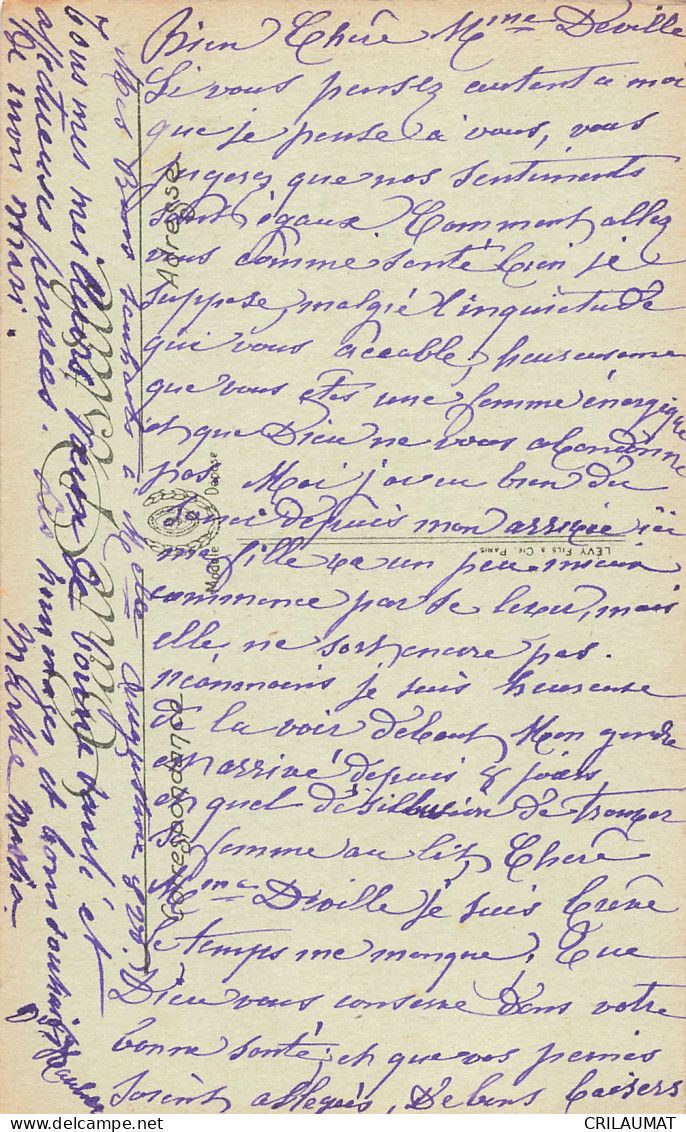 Bien Chère Mme Deville
Si vous pensez autant a moi
que je pense à vous, vous
jugerez que nos sentiments
sont égaux. Comment allez
vous comme santé bien je
suppose, malgré l'inquietude
qui vous accable, heureuseme
que vous êtes une femme énergique
et que Dieu ne vous abandonne
pas. Moi j'ai eu bien du
depuis mon arrivée ici
ma fille va un peu mieux
commence par se lever, mais
elle ne sort encore pas.
néanmoins je suis heureuse
de la voir debout. Mon gendre
est arrivé depuis 8 jours
et quel désillusion de trouver
sa femme au lit, Chère
Mme Deville je suis brève
le temps me manque, Que
Dieu vous conserve dans votre
bonne santé, et que vos peines
soient allegués, De bons baisers
Mes bons souhaits à Augustine
tous mes meilleurs vœux de bonne santé et
affectueuses pensées. Les hommages et bons souhaits
de mon mari.
Marthe
Adresse
Correspondance
Modèle Déposé
LÉVY FILS & CIE, PARIS
CRILAUMAT